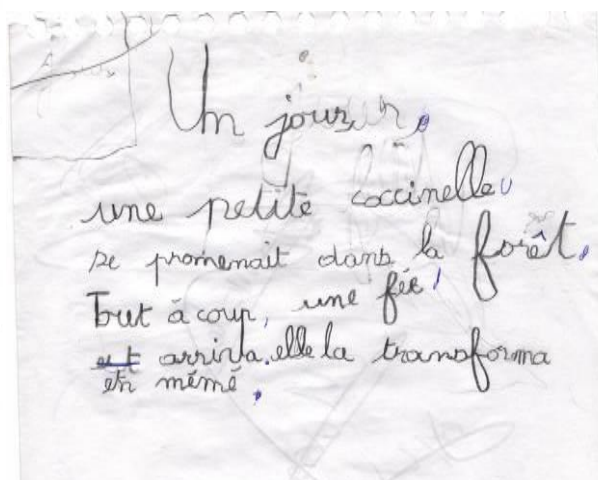 Un jour,
une petite coccinelle
se promenait dans la forêt.
Tout à coup, une fée
est arriva. elle la transforma
en mémé.